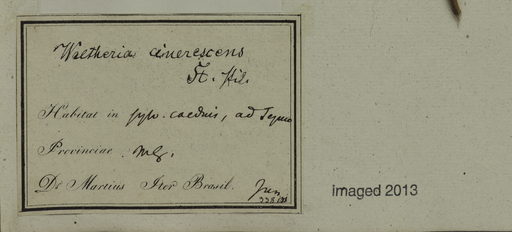 Waltheria cinerescens
St. Hil.
Habitat in sylv. caeduis, ad Tejuco
Provinciae M. G.
Dr Martius Iter Brasil. Jun
imaged 2013